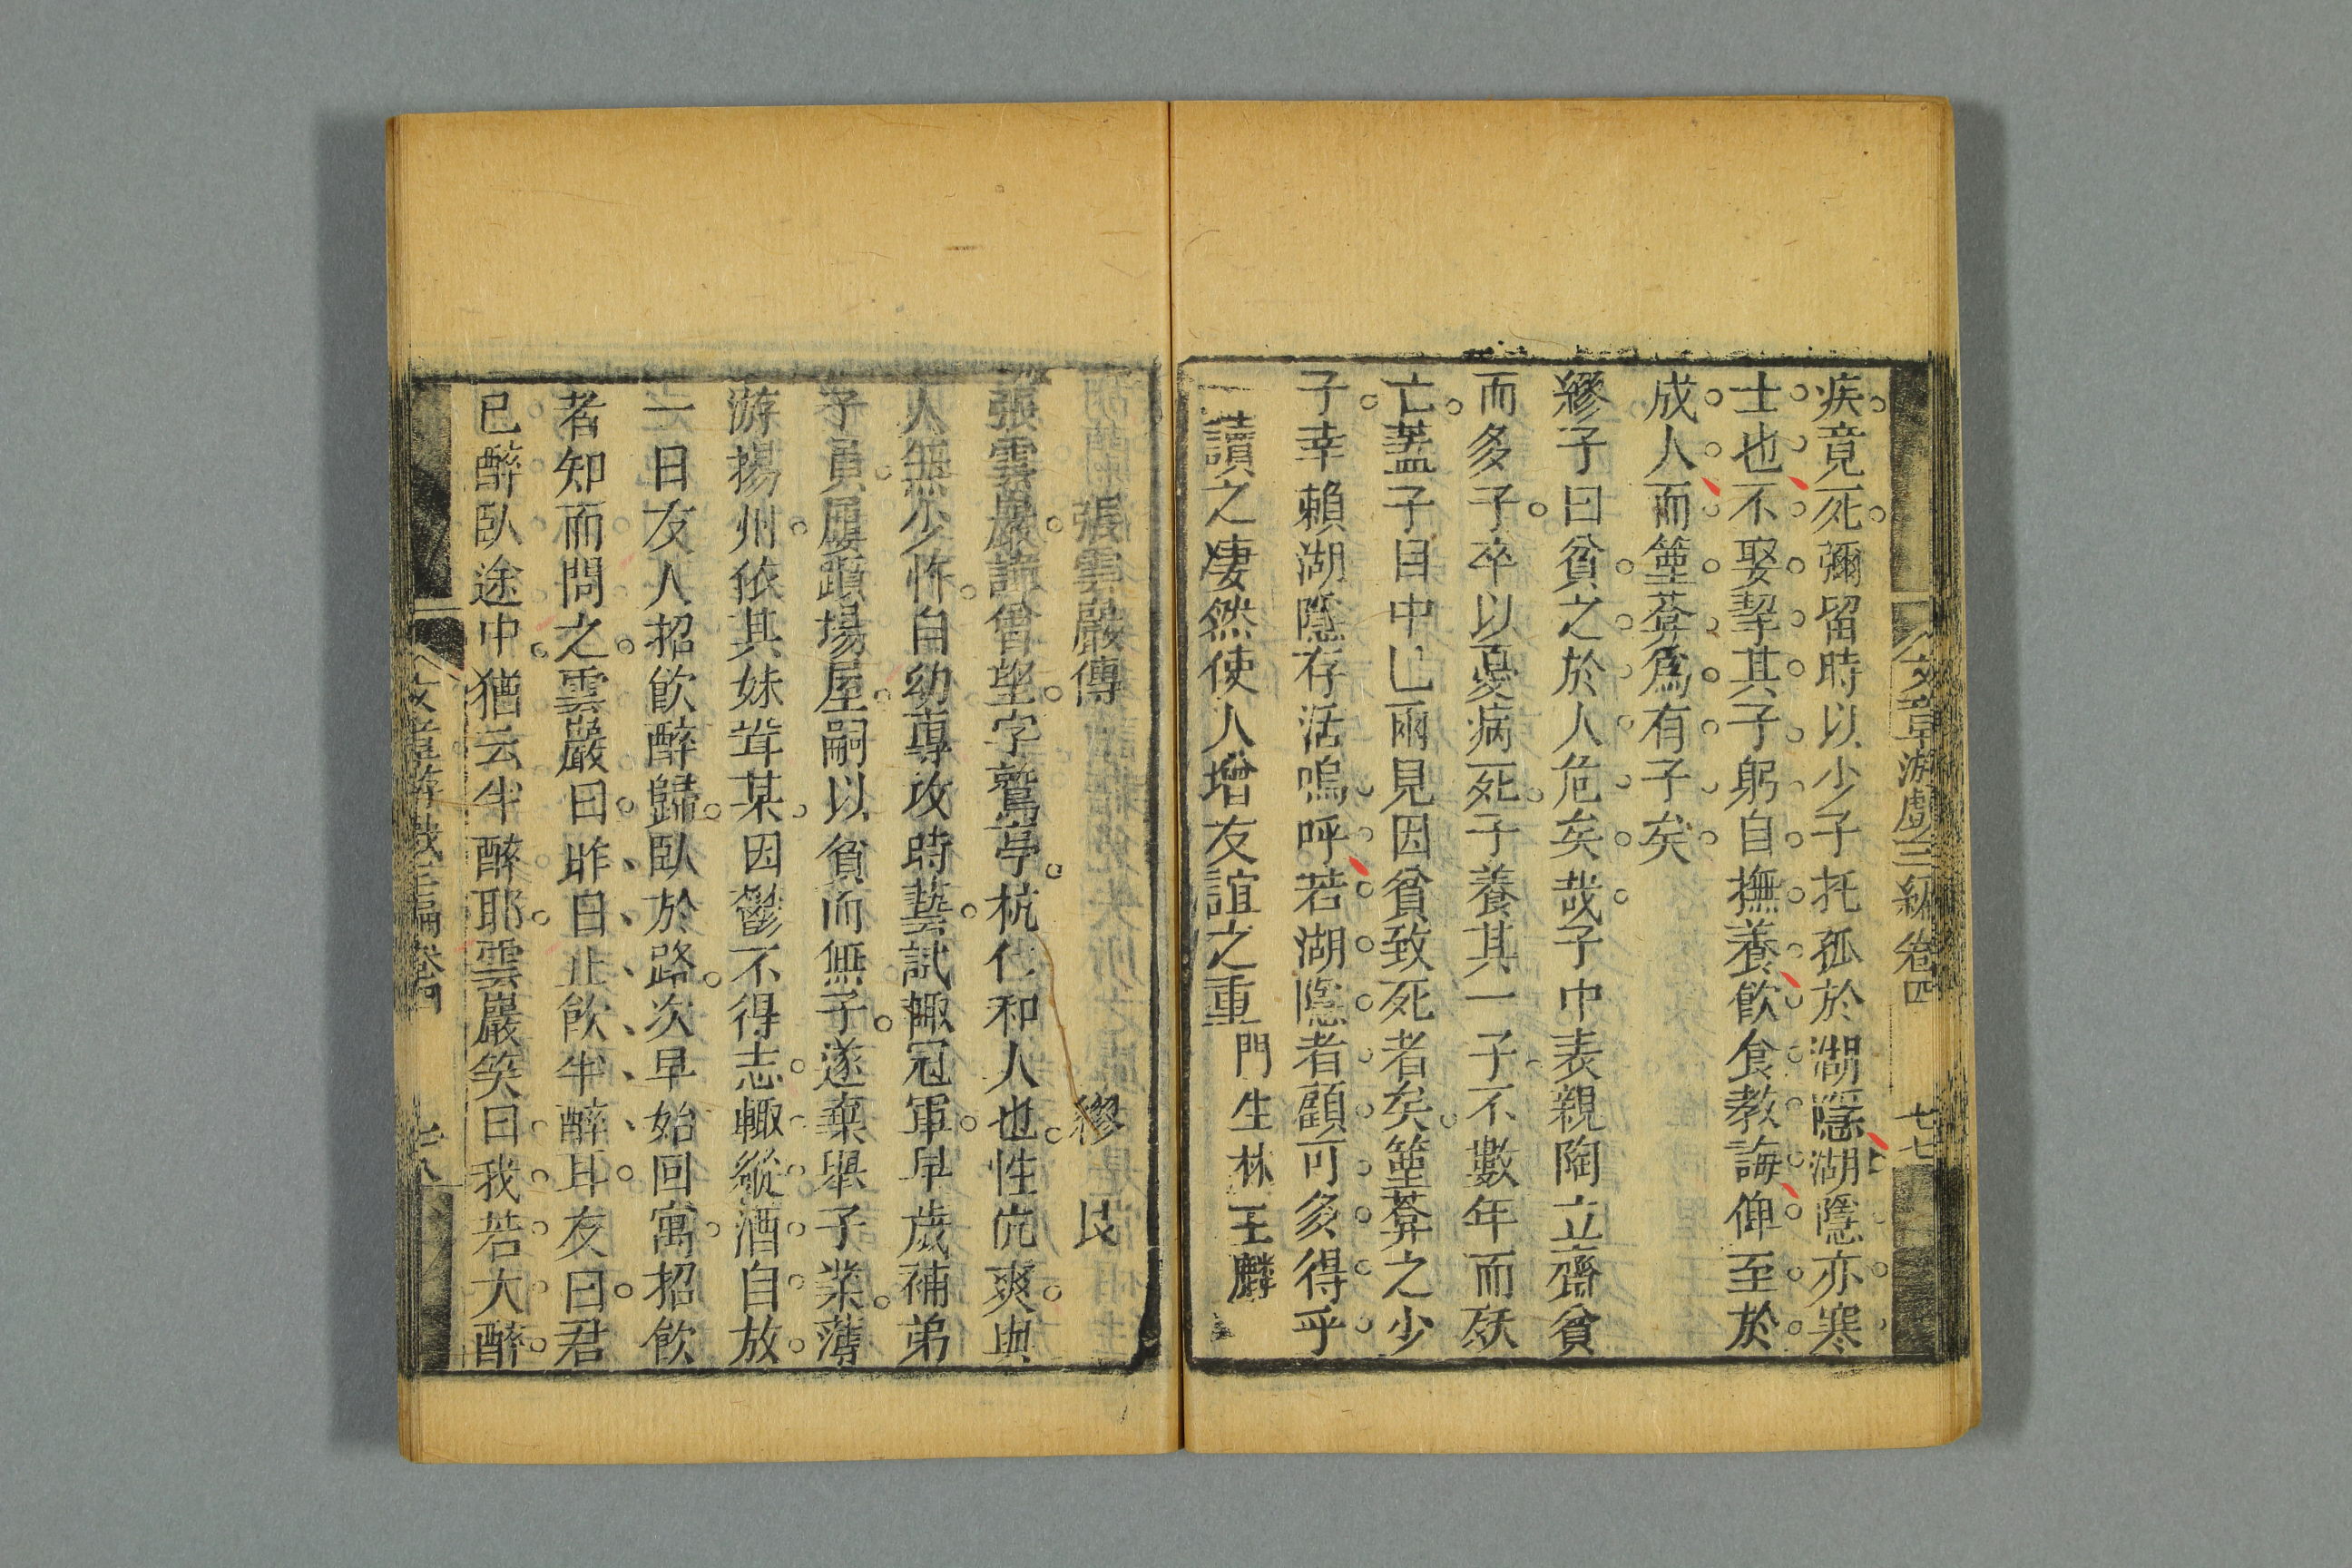 文章游戲三編卷四
七七
疾竟死彌留時以少子托孤於湖隱湖隱亦寒
士也不娶挈其子躬自撫養飲食教誨俾至於
成人而箽葊爲有子矣
繆子曰貧之於人危矣哉子中表親陶立齋貧
而多子卒以憂病死子養其一子不數年而殀
亡蓋子目中已兩見因貧致死者矣箽葊之少
子幸賴湖隱存活嗚呼若湖隱者顧可多得乎
讀之凄然使人增友誼之重 門生林玉麟
張雲巖傳 繆艮
張雲巖諱曾望字鷲亭杭仁和人也性伉爽與
人無少忤自幼專攻時藝試輒冠軍早歲補弟
子員屢躓場屋嗣以貧而無子遂棄舉子業薄
游揚州依其妹壻某因鬱不得志輒縱酒自放
一日友人招飲醉歸臥於路次早始回寓招飲
者知而問之雲巖曰昨日止飲半醉耳友曰君
已醉臥途中猶云半醉耶雲巖笑曰我若大醉
文章游戲三編卷四
七八